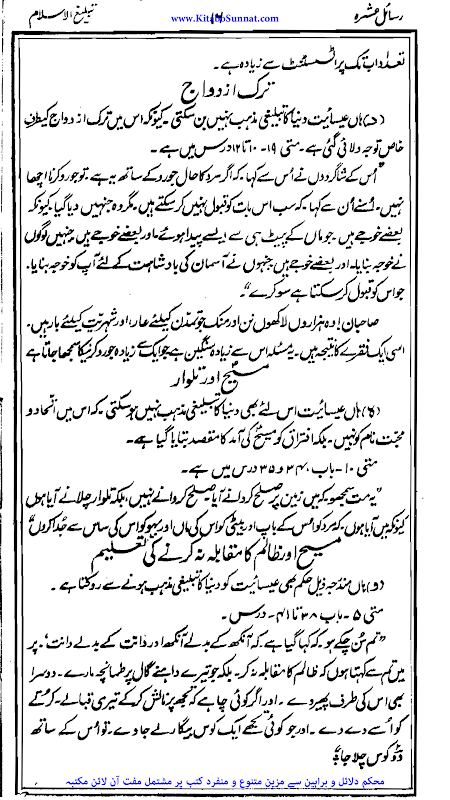 رسائل عشرہ
www.KitaboSunnat.com
۱۲
تبلیغ الاسلام
تعداد اب تک پراٹسٹنٹ سے زیادہ ہے۔
ترک ازدواج
(د) ہاں عیسائیت دنیا کا تبلیغی مذہب نہیں بن سکتی۔ کیونکہ اس میں ترک ازدواج کیطرف
خاص توجہ دلائی گئی ہے۔ متی ۱۹۔ ۱۰ تا ۱۲ درس میں ہے۔
"اُس کے شاگردوں نے اُس سے کہا۔ کہ اگر مرد کا حال جورو کے ساتھ یہ ہے۔ تو جورو کرنا اچھا
نہیں۔ اُسنے اُن سے کہا۔ کہ سب اس بات کو قبول نہیں کر سکتے ہیں۔ مگر وہ جنہیں دیا گیا۔ کیونکہ
بعضے خوجے ہیں۔ جو ماں کے پیٹ ہی سے ایسے پیدا ہوئے۔ اور بعضے خوجے ہیں۔ جنہیں لوگوں
نے خوجہ بنایا۔ اور بعضے خوجے ہیں۔ جنہوں نے آسمان کی بادشاہت کے لئے آپ کو خوجہ بنایا۔
جو اس کو قبول کر سکتا ہے سو کرے"۔
صاحبان! وہ ہزاروں لاکھوں نن اور منک جو تمدن کیلئے عار، اور شہریت کیلئے بار ہیں۔
اسی ایک فقرے کا نتیجہ ہیں۔ یہ مسئلہ اس سے زیادہ سنگین ہے جو ایک سے زیادہ جورو کرنیکا سمجھا جاتا ہے
مسیح اور تلوار
(ہ) ہاں عیسائیت اس لئے بھی دنیا کا تبلیغی مذہب نہیں ہو سکتی۔ کہ اس میں اتحاد و
محبت نام کو نہیں۔ بلکہ افتراق کو مسیح کی آمد کا مقصد بتایا گیا ہے۔
متی ۱۰۔ باب، ۳۴ و ۳۵ درس میں ہے۔
"یہ مت سمجھو کہ میں زمین پر صلح کروانے آیا صلح کروانے نہیں، بلکہ تلوار چلانے آیا ہوں
کیونکہ میں آیا ہوں۔ کہ مرد کو اس کے باپ اور بیٹی کو اس کی ماں اور بہو کو اس کی ساس سے جدا کروں"
مسیح اور ظالم کا مقابلہ نہ کرنے کی تعلیم
(و) ہاں مندرجہ ذیل حکم بھی عیسائیت کو دنیا کا تبلیغی مذہب ہونے سے روکتا ہے۔
متی ۵۔ باب ۳۸ تا ۴۱۔ درس۔
"تم سُن چکے ہو۔ کہ کہا گیا ہے۔ کہ آنکھ کے بدلے آنکھ اور دانت کے بدلے دانت۔ پر
میں تم سے کہتا ہوں کہ ظالم کا مقابلہ نہ کر۔ بلکہ جو تیرے داہنے گال پر طمانچہ مارے۔ دوسرا
بھی اس کی طرف پھیر دے۔ اور اگر کوئی چاہے کہ تجھ پر نالش کر کے تیری قبا لے۔ کرتے
کو اُسے دے دے۔ اور جو کوئی تجھے ایک کوس بیگار لے جاوے۔ تو اُس کے ساتھ
دو کوس چلا جا"
محکم دلائل و براہین سے مزین متنوع و منفرد کتب پر مشتمل مفت آن لائن مکتبہ